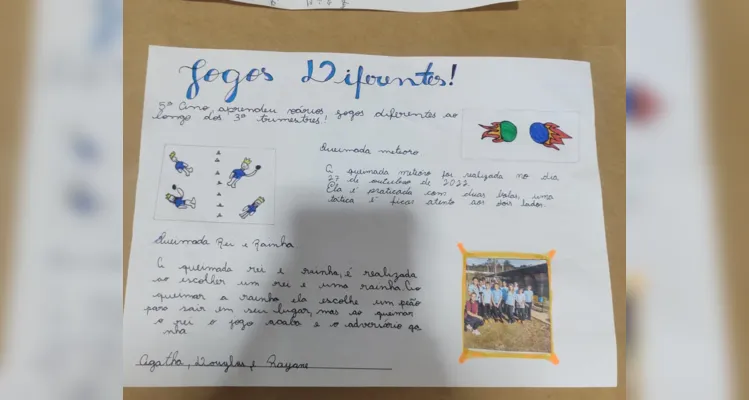 Jogos Diferentes!
5º Ano aprendeu vários jogos diferentes ao
longo dos 3º trimestres!
Queimada meteoro
A queimada meteoro foi realizada no dia
27 de outubro de 2022.
Ela é praticada com duas bolas, uma
tática é ficar atento aos dois lados.
Queimada Rei e Rainha
A queimada rei e rainha, é realizada
ao escolher um rei e uma rainha. Ao
queimar a rainha ela escolhe um peão
para sair em seu lugar, mas ao queimar
o rei o jogo acaba e o adversário ga
nha
Agatha, Douglas e Rayane